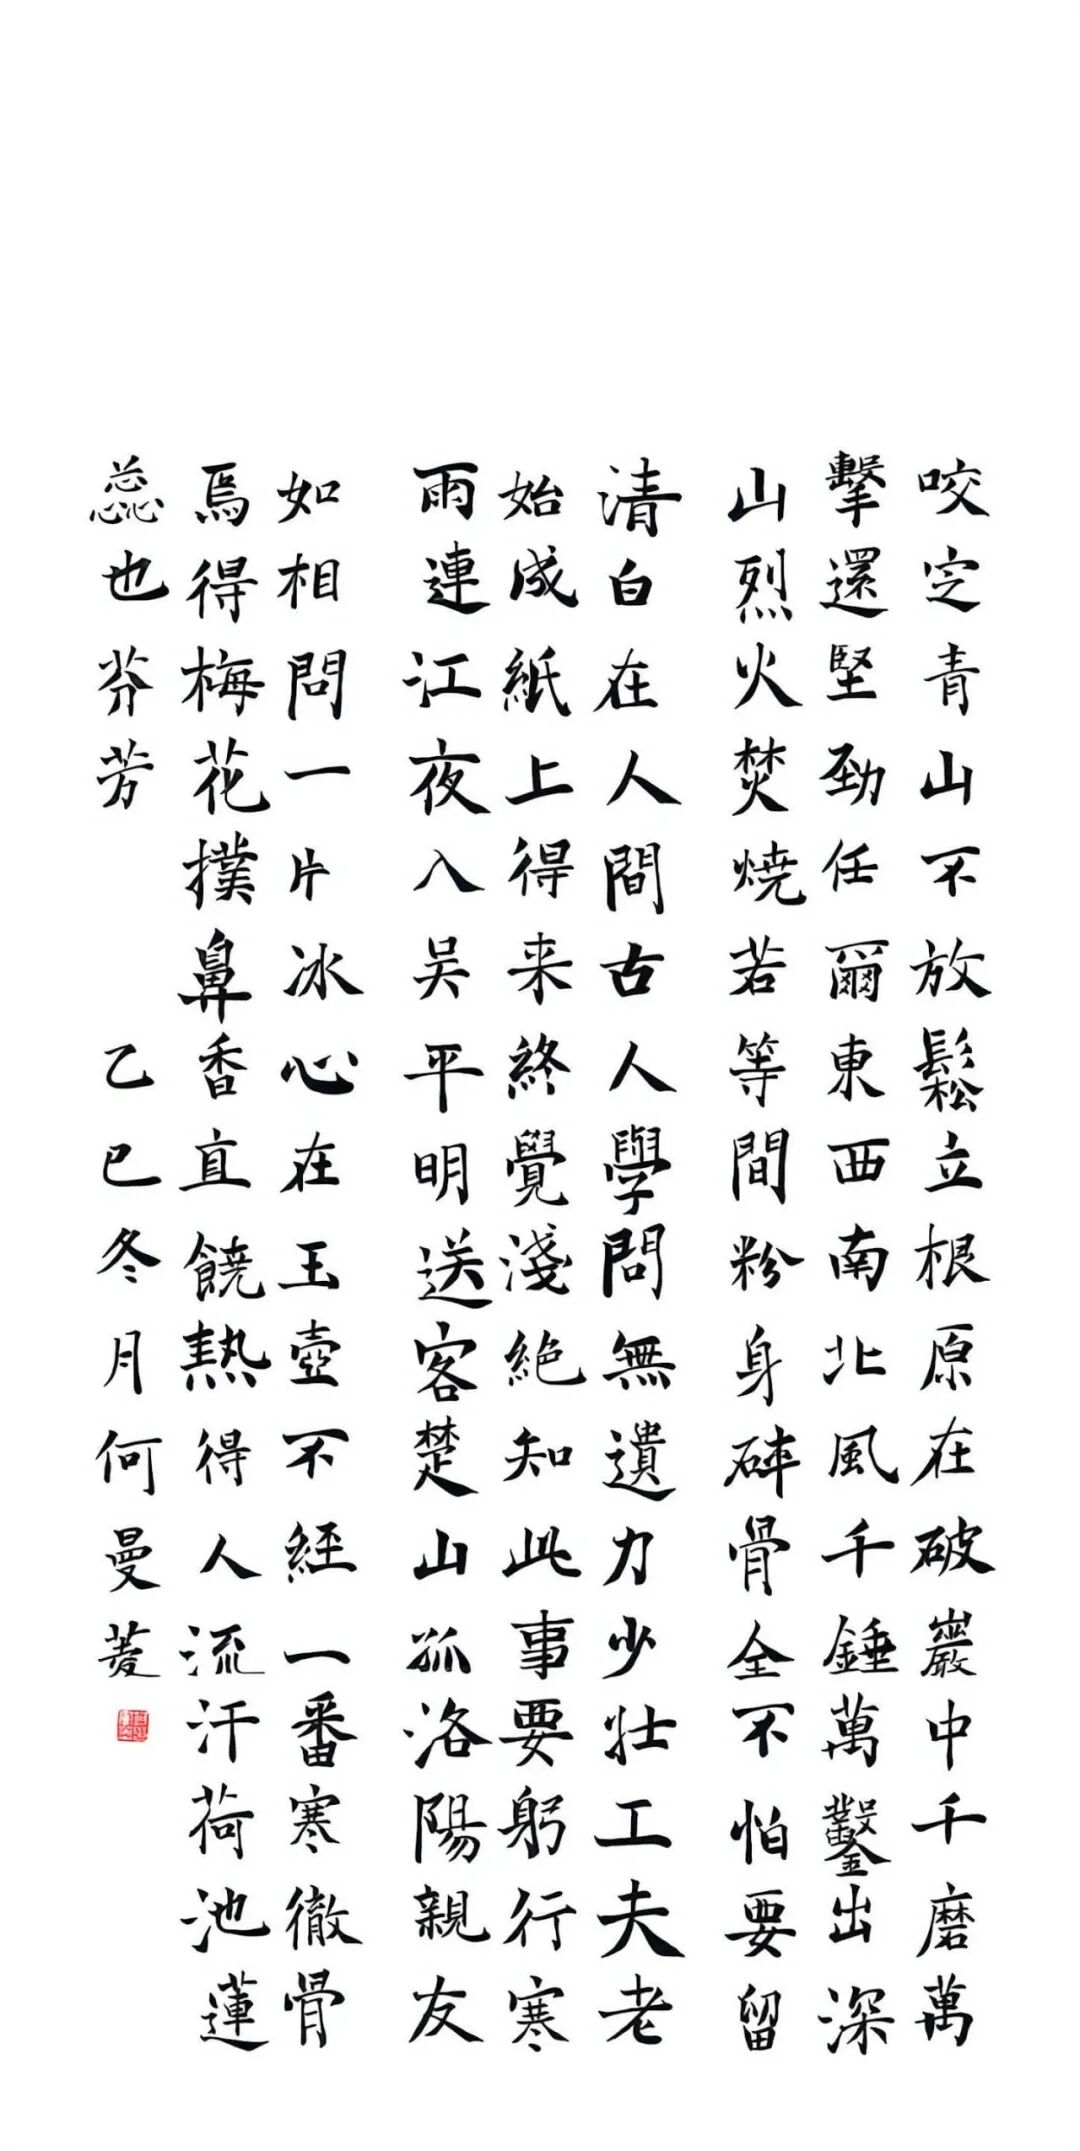 咬定青山不放鬆立根原在破巖中千磨萬
擊還堅勁任爾東西南北風千錘萬鑿出深
山烈火焚燒若等間粉身碎骨全不怕要留
清白在人間古人學問無遺力少壯工夫老
始成紙上得来終覺淺絕知此事要躬行寒
雨連江夜入吴平明送客楚山孤洛陽親友
如相問一片冰心在玉壺不經一番寒徹骨
焉得梅花撲鼻香直饒熱得人流汗荷池蓮
蕊也芬芳
乙巳冬月何曼菱